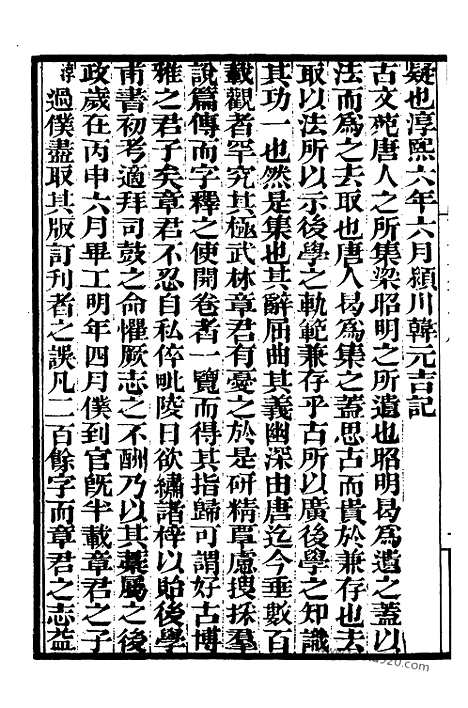 疑也淳熙六年六月潁川韓元吉記
古文苑唐人之所集梁昭明之所遺也昭明曷為遺之蓋以
法而為之去取也唐人曷為集之蓋思古而貴於兼存也去
取以法所以示後學之軌範兼存乎古所以廣後學之知識
其功一也然是集也其辭屈曲其義幽深由唐迄今垂數百
載觀者罕究其極武林章君有憂之於是研精覃慮搜採羣
說篇傳而字釋之使開卷者一覽而得其指歸可謂好古博
雅之君子矣章君不忍自私倅毗陵日欲繡諸梓以貽後學
甫書初考適拜司鼓之命懼厥志之不酬乃以其槀屬之後
政歲在丙申六月畢工明年四月僕到官既半載章君之子
淳過僕盡取其版訂刊者之誤凡二百餘字而章君之志益